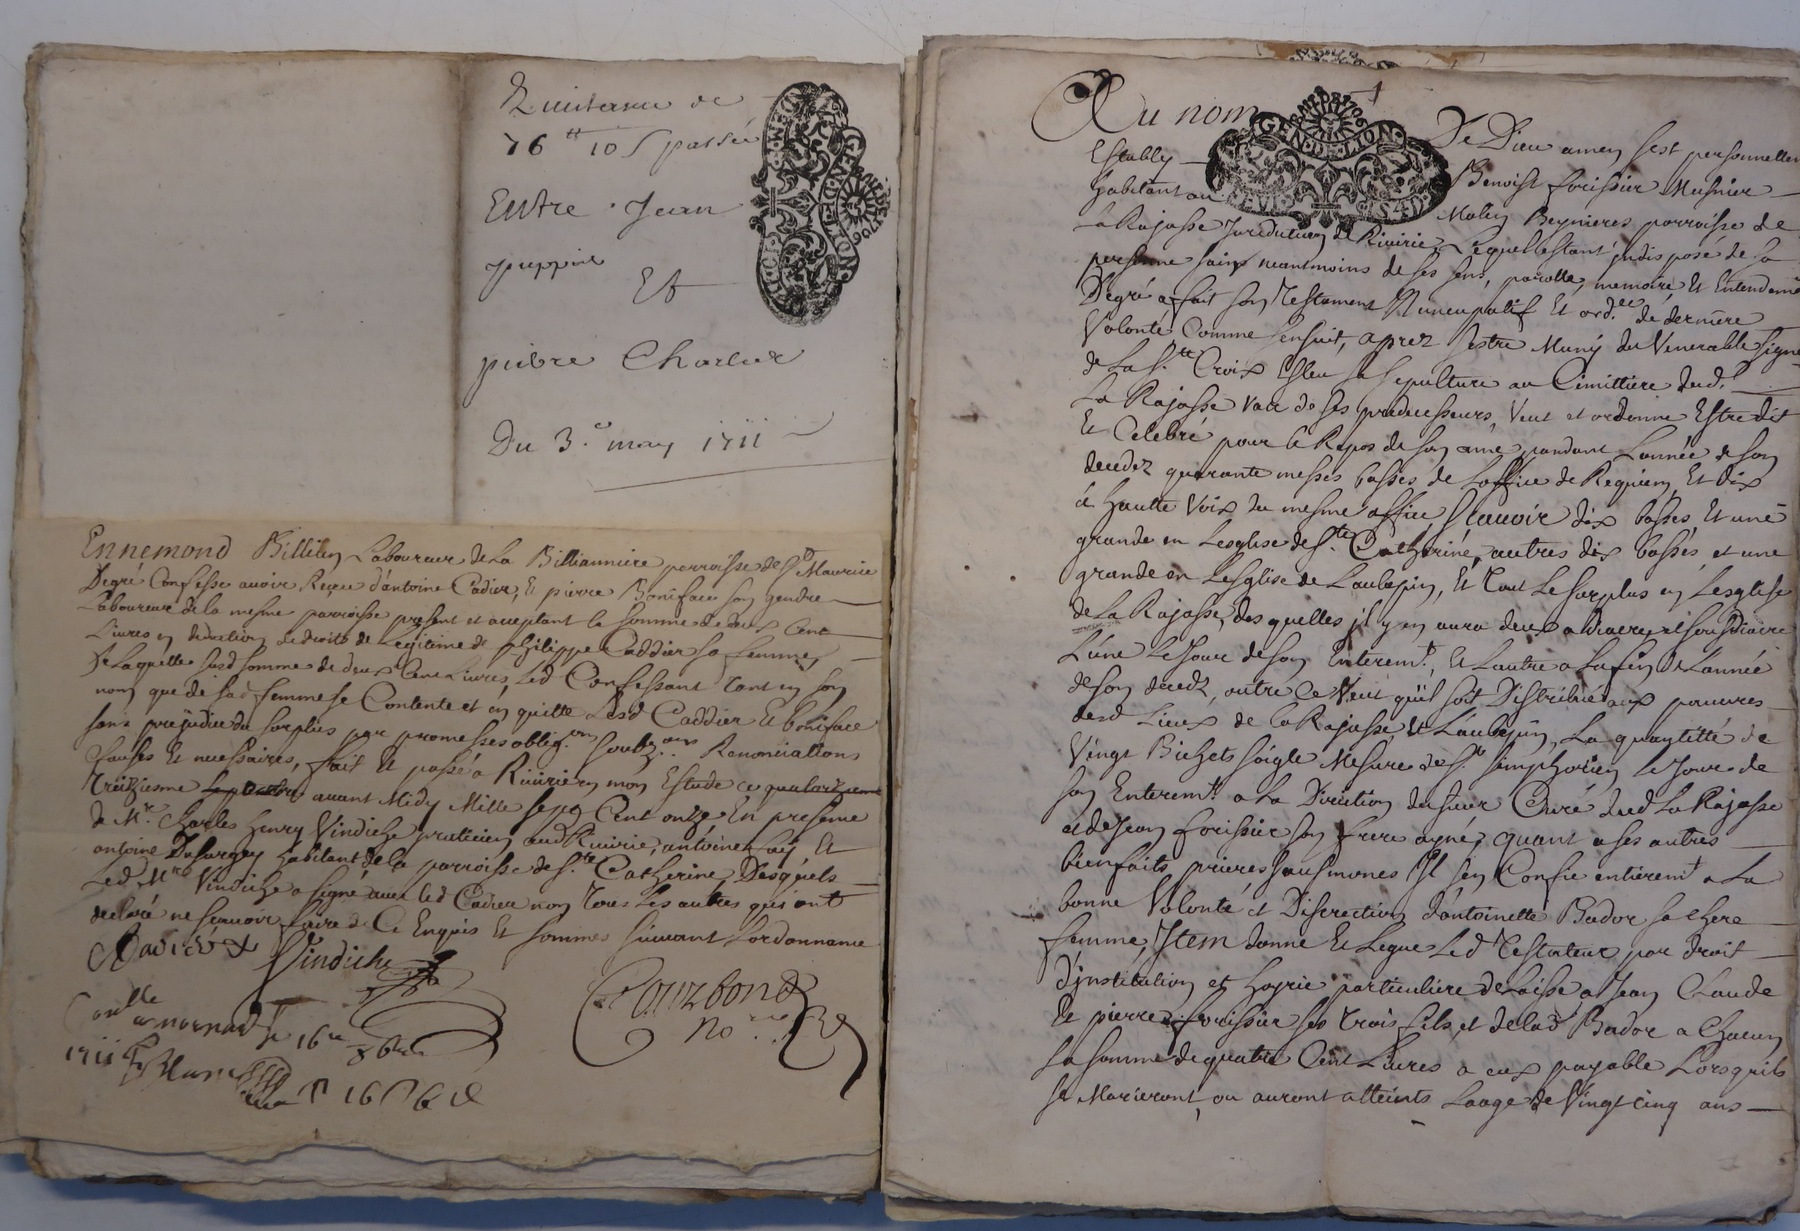 Quittance de
76 ₶ 10 s passée
Entre Jean
puppier
Et
pierre Charlier
Du 3.e may 1711
GEN.DE.LION
Ennemond Billien Laboureur de La Billianniere parroisse de St Maurice
Degré Confesse avoir Reçeu d'antoine Cadier, Et pierre Boniface son gendre
Laboureur de la mesme parroisse present et acceptant la somme de deux Cent
Livres en deduction des droits de Legitime de philippe Caddier sa femme,
de laquelle susd somme de deux Cent Livres, Led Confessant tant en son
nom que de sad femme se Contente et en quitte Lesd Caddier Et boniface
sans prejudice du surplus par promesses oblig.ons soubz.ons Renonciations
Clauses Et necessaires, fait Et passé a Rivirie en mon Estude ce quatorzieme
treiziesme avant Midy Mille sept Cent onze En presence
de Mr. Charles henry Vindiche praticien aud Riuirie, antoine fay Et
antoine Dusurgey habitant de la parroisse de Ste Catherine Desquels
Led. Mre Vindiche a signé avec led Cadier non tous Les autres qui ont
declaré ne scauoir faire de Ce Enquis Et sommés suivant Lordonnance
Cadier Vindiche
Courbon
No.re
Con.lle a mornant Le 16e
1711
Au nom De Dieu amen sest personnellem
Estably Benoist forissier Musnier
habitant au Molin Beynieres parroisse de
La Rajasse Juridiction de Riuirie, Lequel estant jndisposé de sa
personne sain neantmoins de ses sens, parolle, memoire, Et Entendem
Degré a fait son Testament Nuncupatif Et ord.ce de derniere
Volonté Comme sensuit, aprez sestre Muny du Venerable signe
de La Ste Croix Esleu sa sepulture au Cimittiere dud.
La Rajasse vaz de ses predecesseurs, Veut et ordonne Estre dit
Et Celebré pour le Repos de son ame pandant Lannée de son
decedz quarante messes basses de Loffice de Requiem, Et dix
a haute Voix du mesme office, scauoir dix basses, Et une
grande en Lesglise de Ste Catherine, autres dix basses et une
grande en Lesglise de Laubepin, Et tout Le surplus en Lesglise
de La Rajasse, des quelles jl y en aura deux a diacre, et sousdiacre
Lune Le Jour de son Enterem.t, Et Lautre a La fin de Lannée
de son decedz, outre Ce Veut quil soit Distribué aux pauvres
desd Lieux de La Rajasse, Et Laubepin, La quantitté de
Vingt Bichets soigle Mesure de St simphorien Le Jour de
son Enterem.t a La Direction du sieur Curé dud La Rajasse
et de Jean forissier son frere ayné, quant a ses autres
bienfaits, prieres, aumones Jl sen Confie entierem.t a La
bonne Volonté et Discretion d'antoinette Bador sa chere
femme, Jtem donne Et Legue Led Testateur par droit
d'jnstitution et hoyrie particuliere delaisse a Jean Claude
Et pierre forissier ses trois fils, et de lad Bador a Chacun
La somme de quatre Cent Livres a eux payable Lors quils
se Marieront, ou auront atteints Laage de Vingt cinq ans